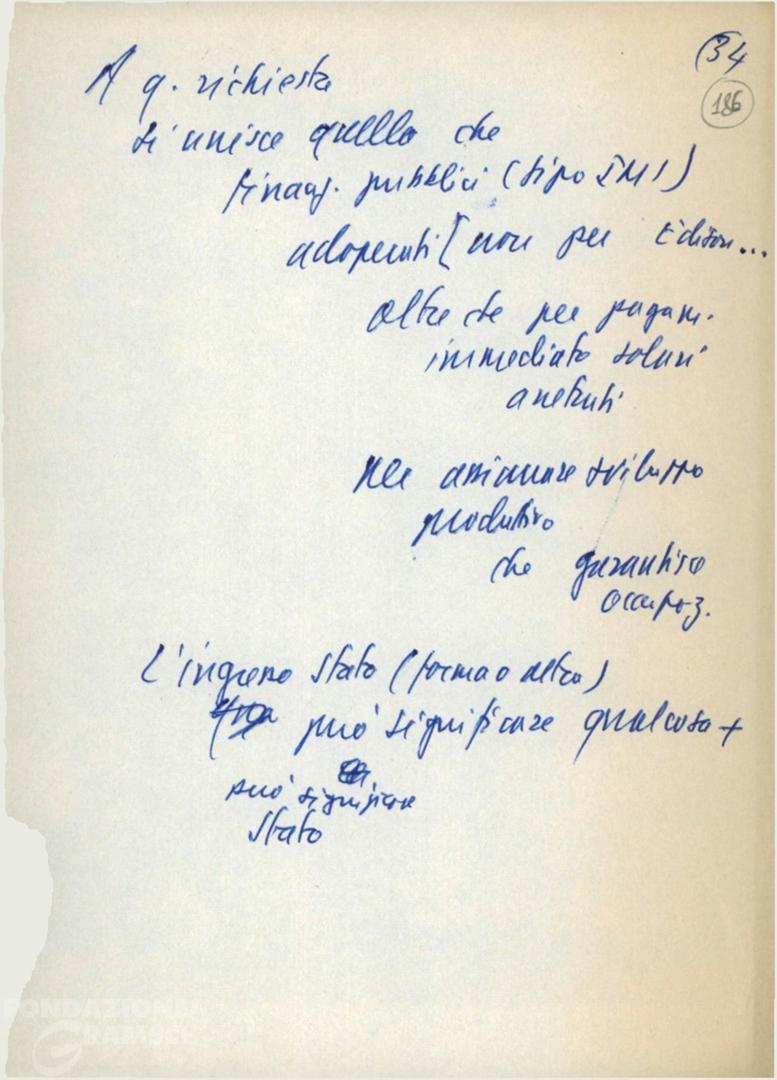 (34
186
A q. richiesta
si unisce quella che
finanz. pubblici (tipo IMI)
adoperati [non per Edison...
oltre che per pagam.
immediato salari
arretrati
per assicurare sviluppo
produttivo
che garantisce
occupaz.
L'ingresso Stato (forma o altra)
può significare qualcosa +
può significare
Stato
FONDAZIONE
GRAMSCI